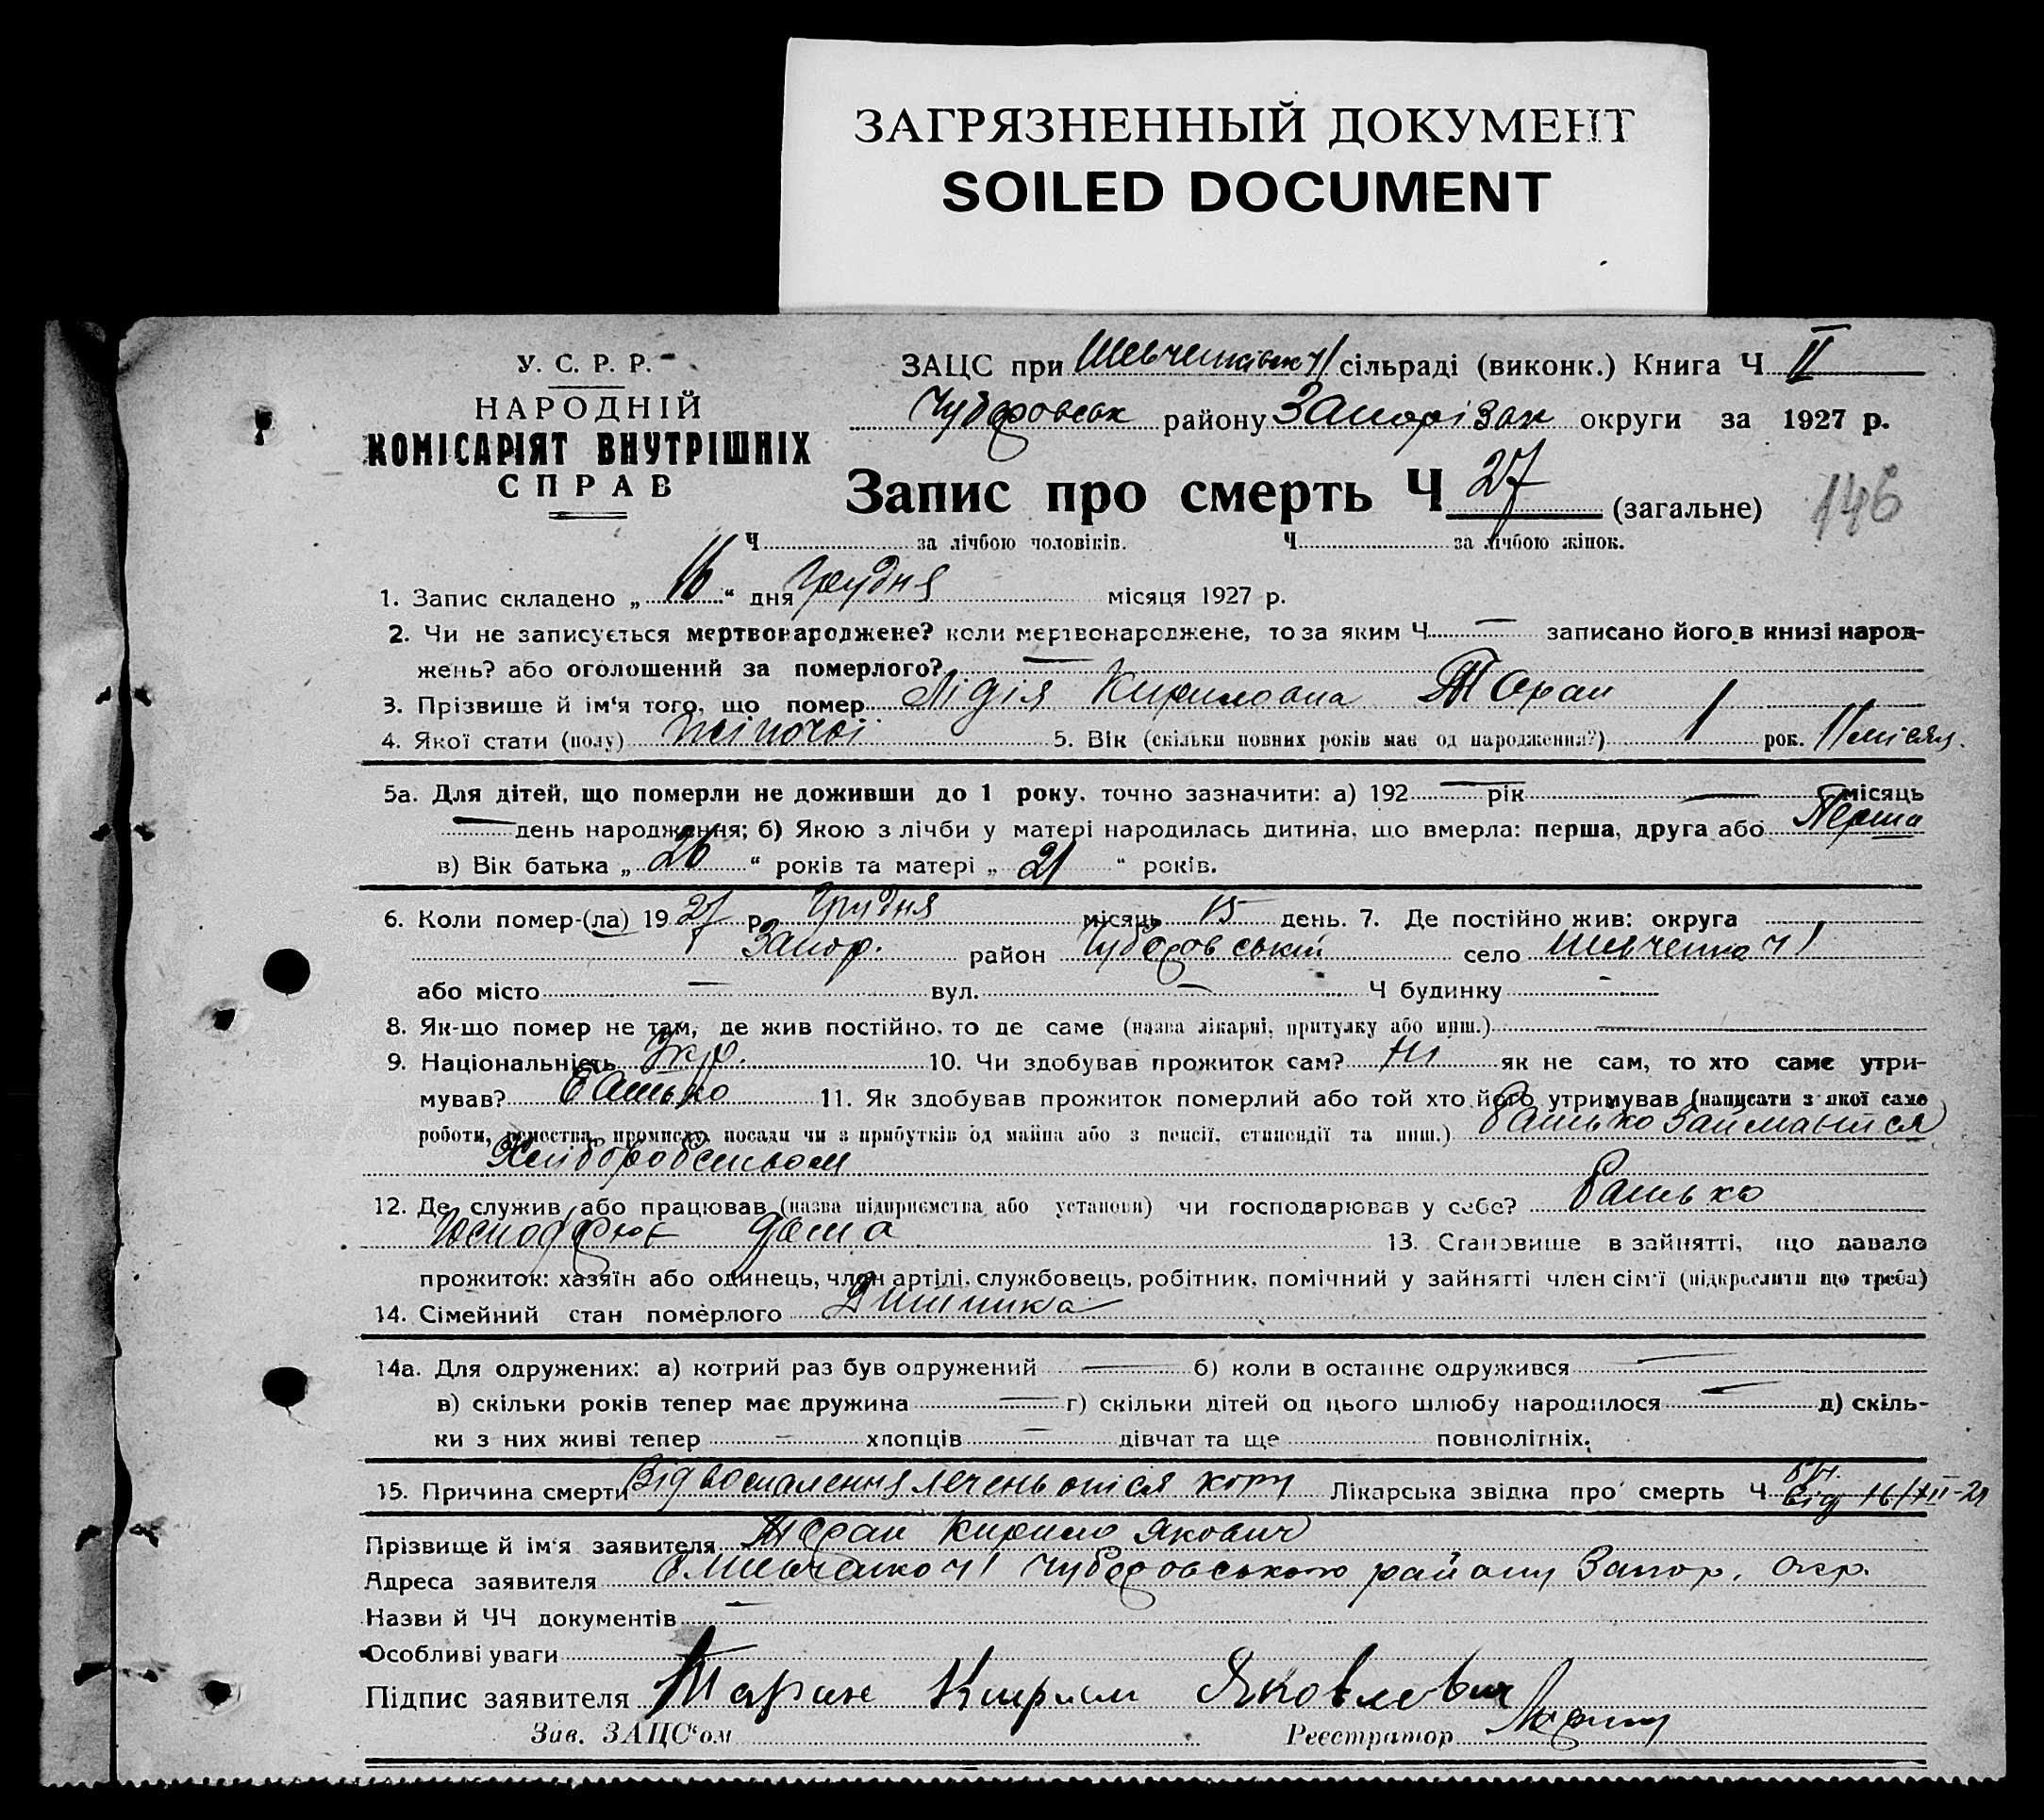 ЗАГРЯЗНЕННЫЙ ДОКУМЕНТ
SOILED DOCUMENT
У. С. Р. Р.
НАРОДНІЙ
КОМІСАРІЯТ ВНУТРІШНІХ
СПРАВ
ЗАЦС при Шевченківск ч1 сільраді (виконк.) Книга Ч II
Чубаровськ району Запорізьк округи за 1927 р.
Запис про смерть Ч 27 (загальне)
146
Ч за лічбою чоловіків. Ч за лічбою жінок.
1. Запис складено „ 16 “ дня Грудня місяця 1927 р.
2. Чи не записується мертвонароджене? коли мертвонароджене, то за яким Ч — записано його в книзі народ-
жень? або оголошений за померлого? —
3. Прізвище й ім‘я того, що помер Лідія Кириловна Таран
4. Якої стати (полу) жіночої 5. Вік (скільки повних років має од народження?) 1 рок. 11 місяц.
5а. Для дітей, що померли не доживши до 1 року, точно зазначити: а) 192 — рік — місяць
— день народження; б) Якою з лічби у матері народилась дитина, що вмерла: перша, друга або Перша
в) Вік батька „ 26 “ років та матері „ 21 “ років.
6. Коли помер-(ла) 19 27 р. Грудня місяць 15 день. 7. Де постійно жив: округа
Запор. район Чубаровський село Шевченко ч1
або місто — вул. — Ч будинку —
8. Як-що помер не там, де жив постійно, то де саме (назва лікарні, притулку або инш.) —
9. Національність Укр. 10. Чи здобував прожиток сам? Ні як не сам, то хто саме утри-
мував? батько 11. Як здобував прожиток померлий або той хто його утримував (написати з якої саме
роботи, ремества, промислу, посади чи з прибутків од майна або з пенсії, стипендії та инш.) батько займається
Хліборобством
12. Де служив або працював (назва підприємства або установи) чи господарював у себе? батько
Господарює дома 13. Становище в зайнятті, що давало
прожиток: хазяїн або одинець, член артілі, службовець, робітник, помічний у зайнятті член сім‘ї (підкреслити що треба)
14. Сімейний стан померлого Дитинка
14а. Для одружених: а) котрий раз був одружений — б) коли в останнє одружився —
в) скільки років тепер має дружина — г) скільки дітей од цього шлюбу народилося — д) скіль-
ки з них живі тепер — хлопців — дівчат та ще повнолітніх.
15. Причина смерти Від воспалення легень опісля кору Лікарська звідка про смерть Ч від 16/XII-27
Прізвище й ім‘я заявителя Таран Кирило Якович
Адреса заявителя с Шевченко ч1 Чубаровського району Запор. окр.
Назви й ЧЧ документів —
Особливі уваги
Підпис заявителя Таран Кирил Яковлевич
Зав. ЗАЦС‘ом Реєстратор